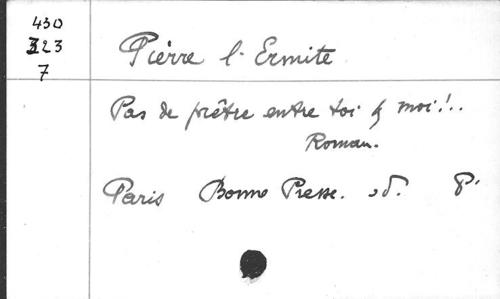 430
323
7
Pierre l'Ermite
Pas de prêtre entre toi & moi!..
Roman.
Paris Bonne Presse. sd. 8°